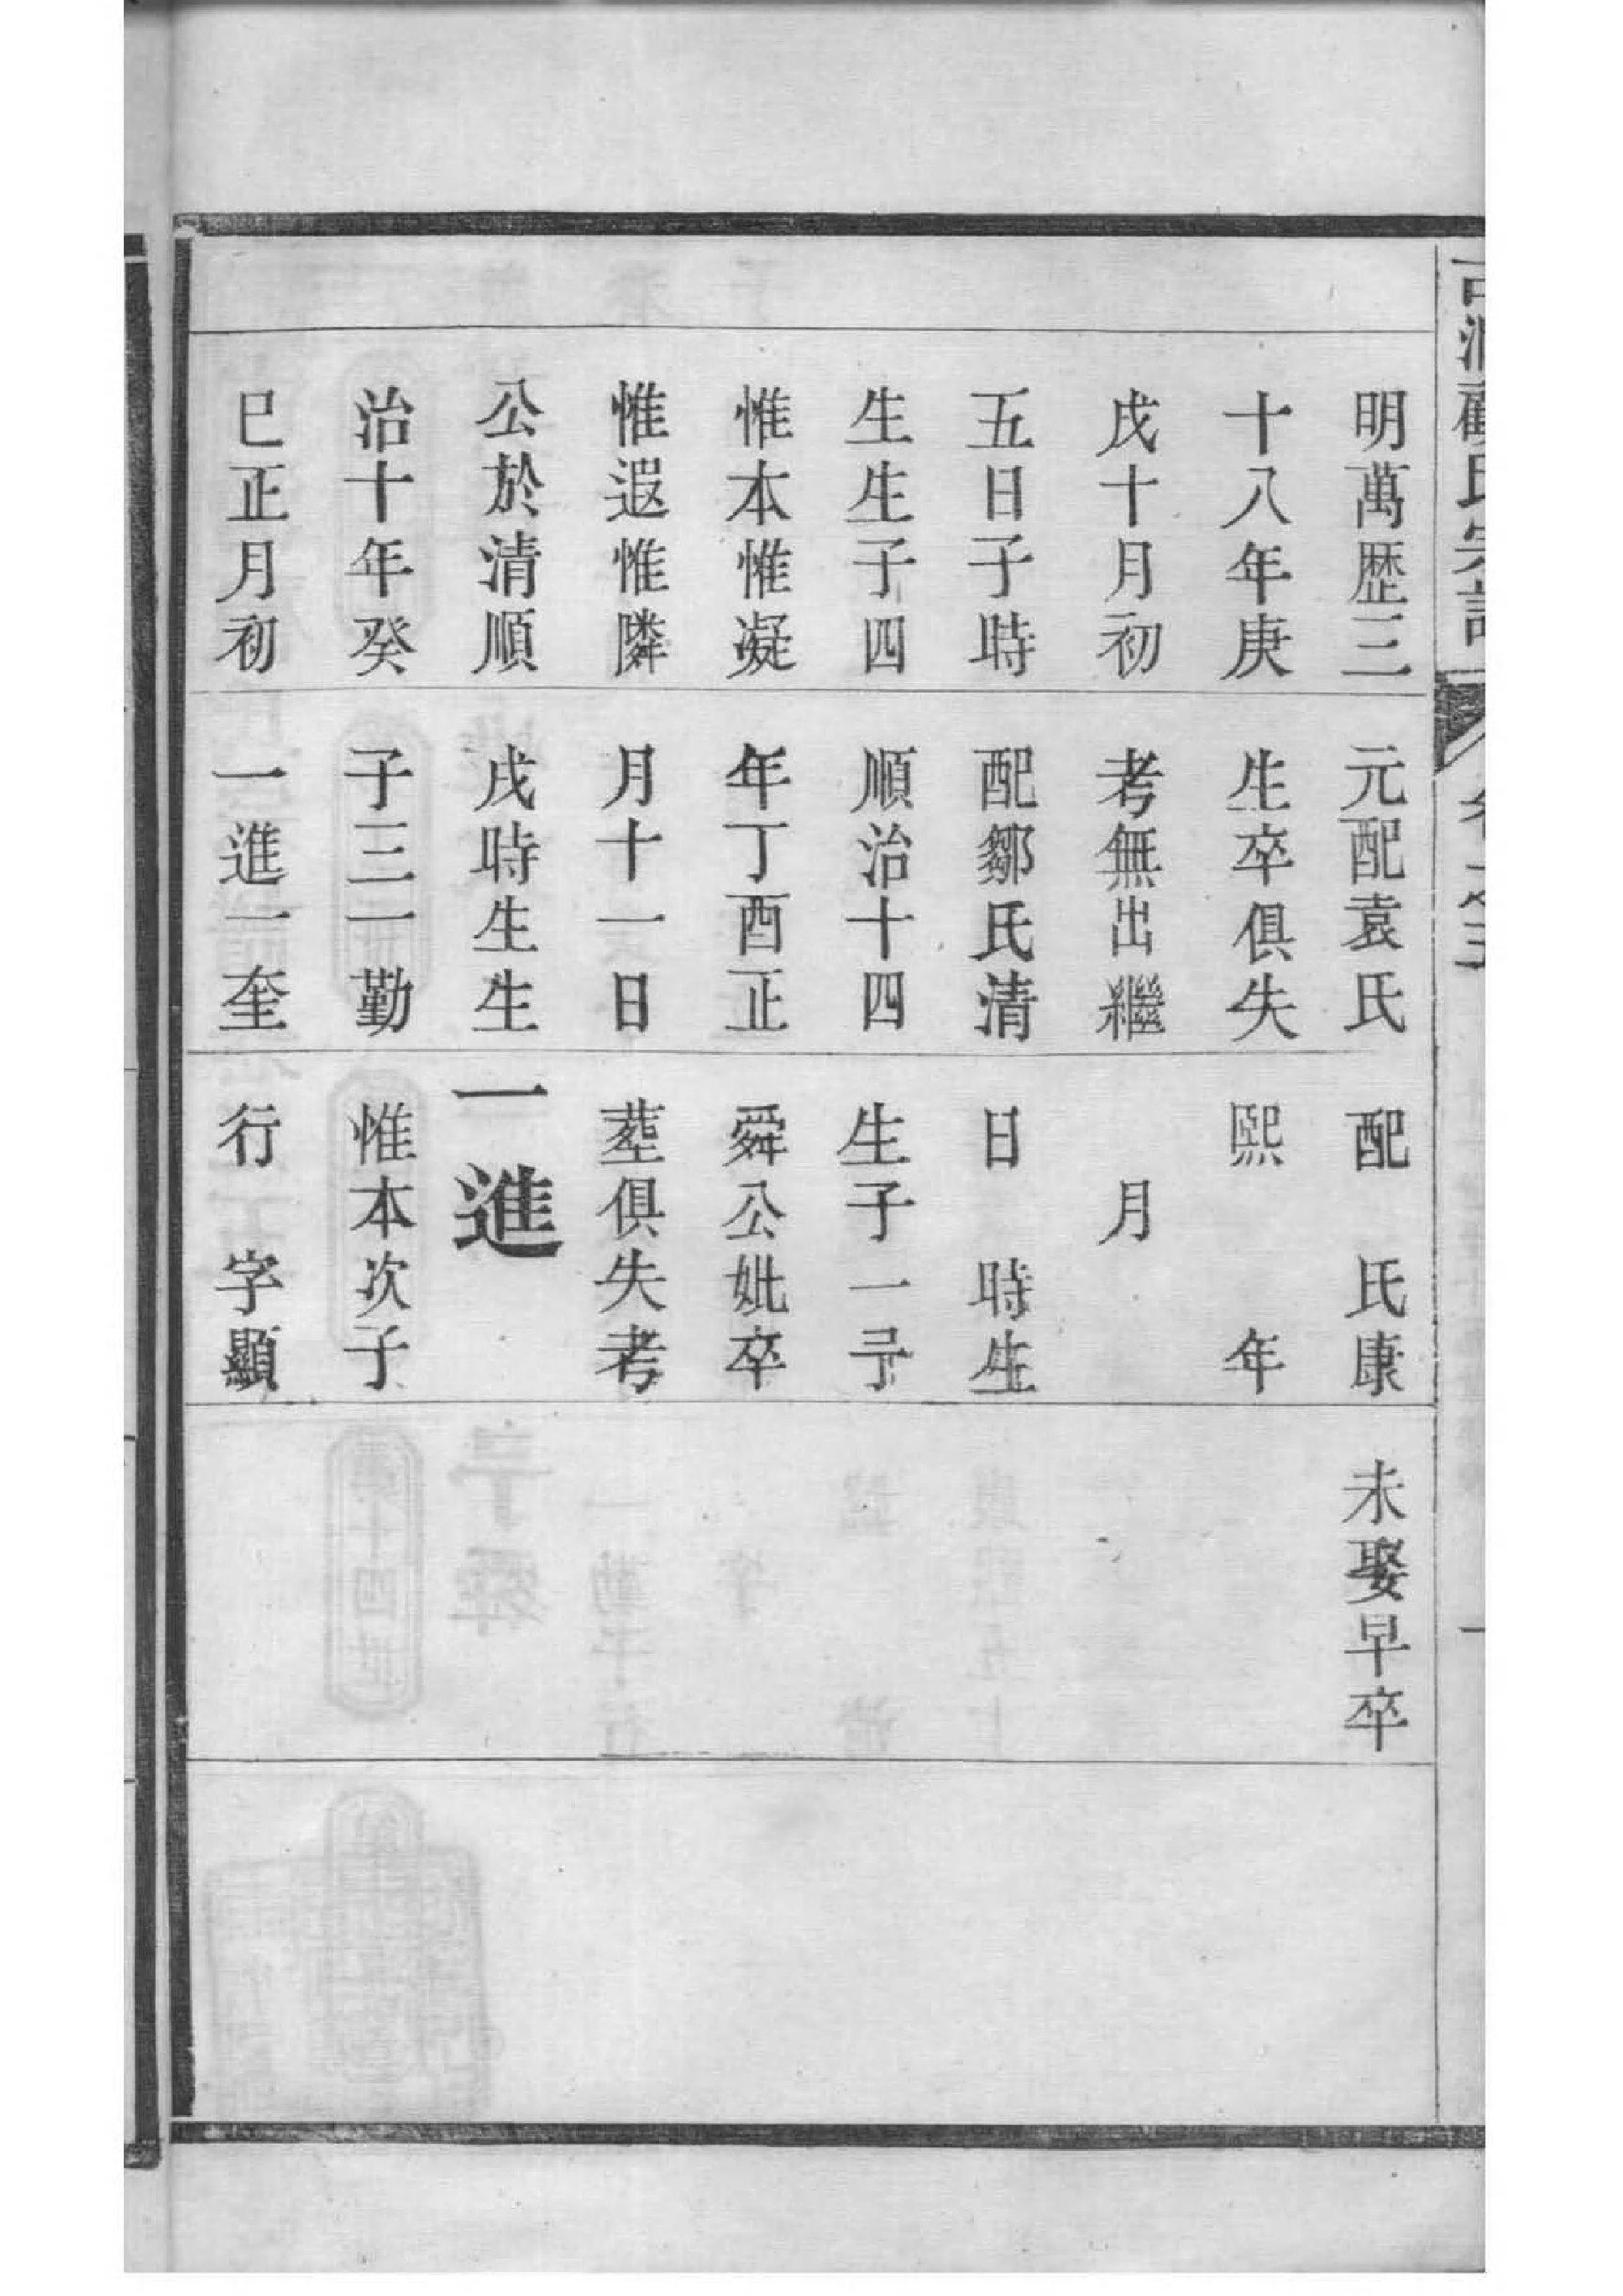 明萬歷三
十八年庚
戌十月初
五日子時
生生子四
惟本惟凝
惟遐惟隣
公於清順
治十年癸
巳正月初
元配袁氏
生卒俱失
考無出繼
配鄒氏清
順治十四
年丁酉正
月十一日
戌時生生
子三一勤
一進一奎
配　氏康
熙　　年
月
日　時生
生子一㝷
舜公妣卒
塟俱失考
一進
惟本次子
行　字顯
未娶早卒